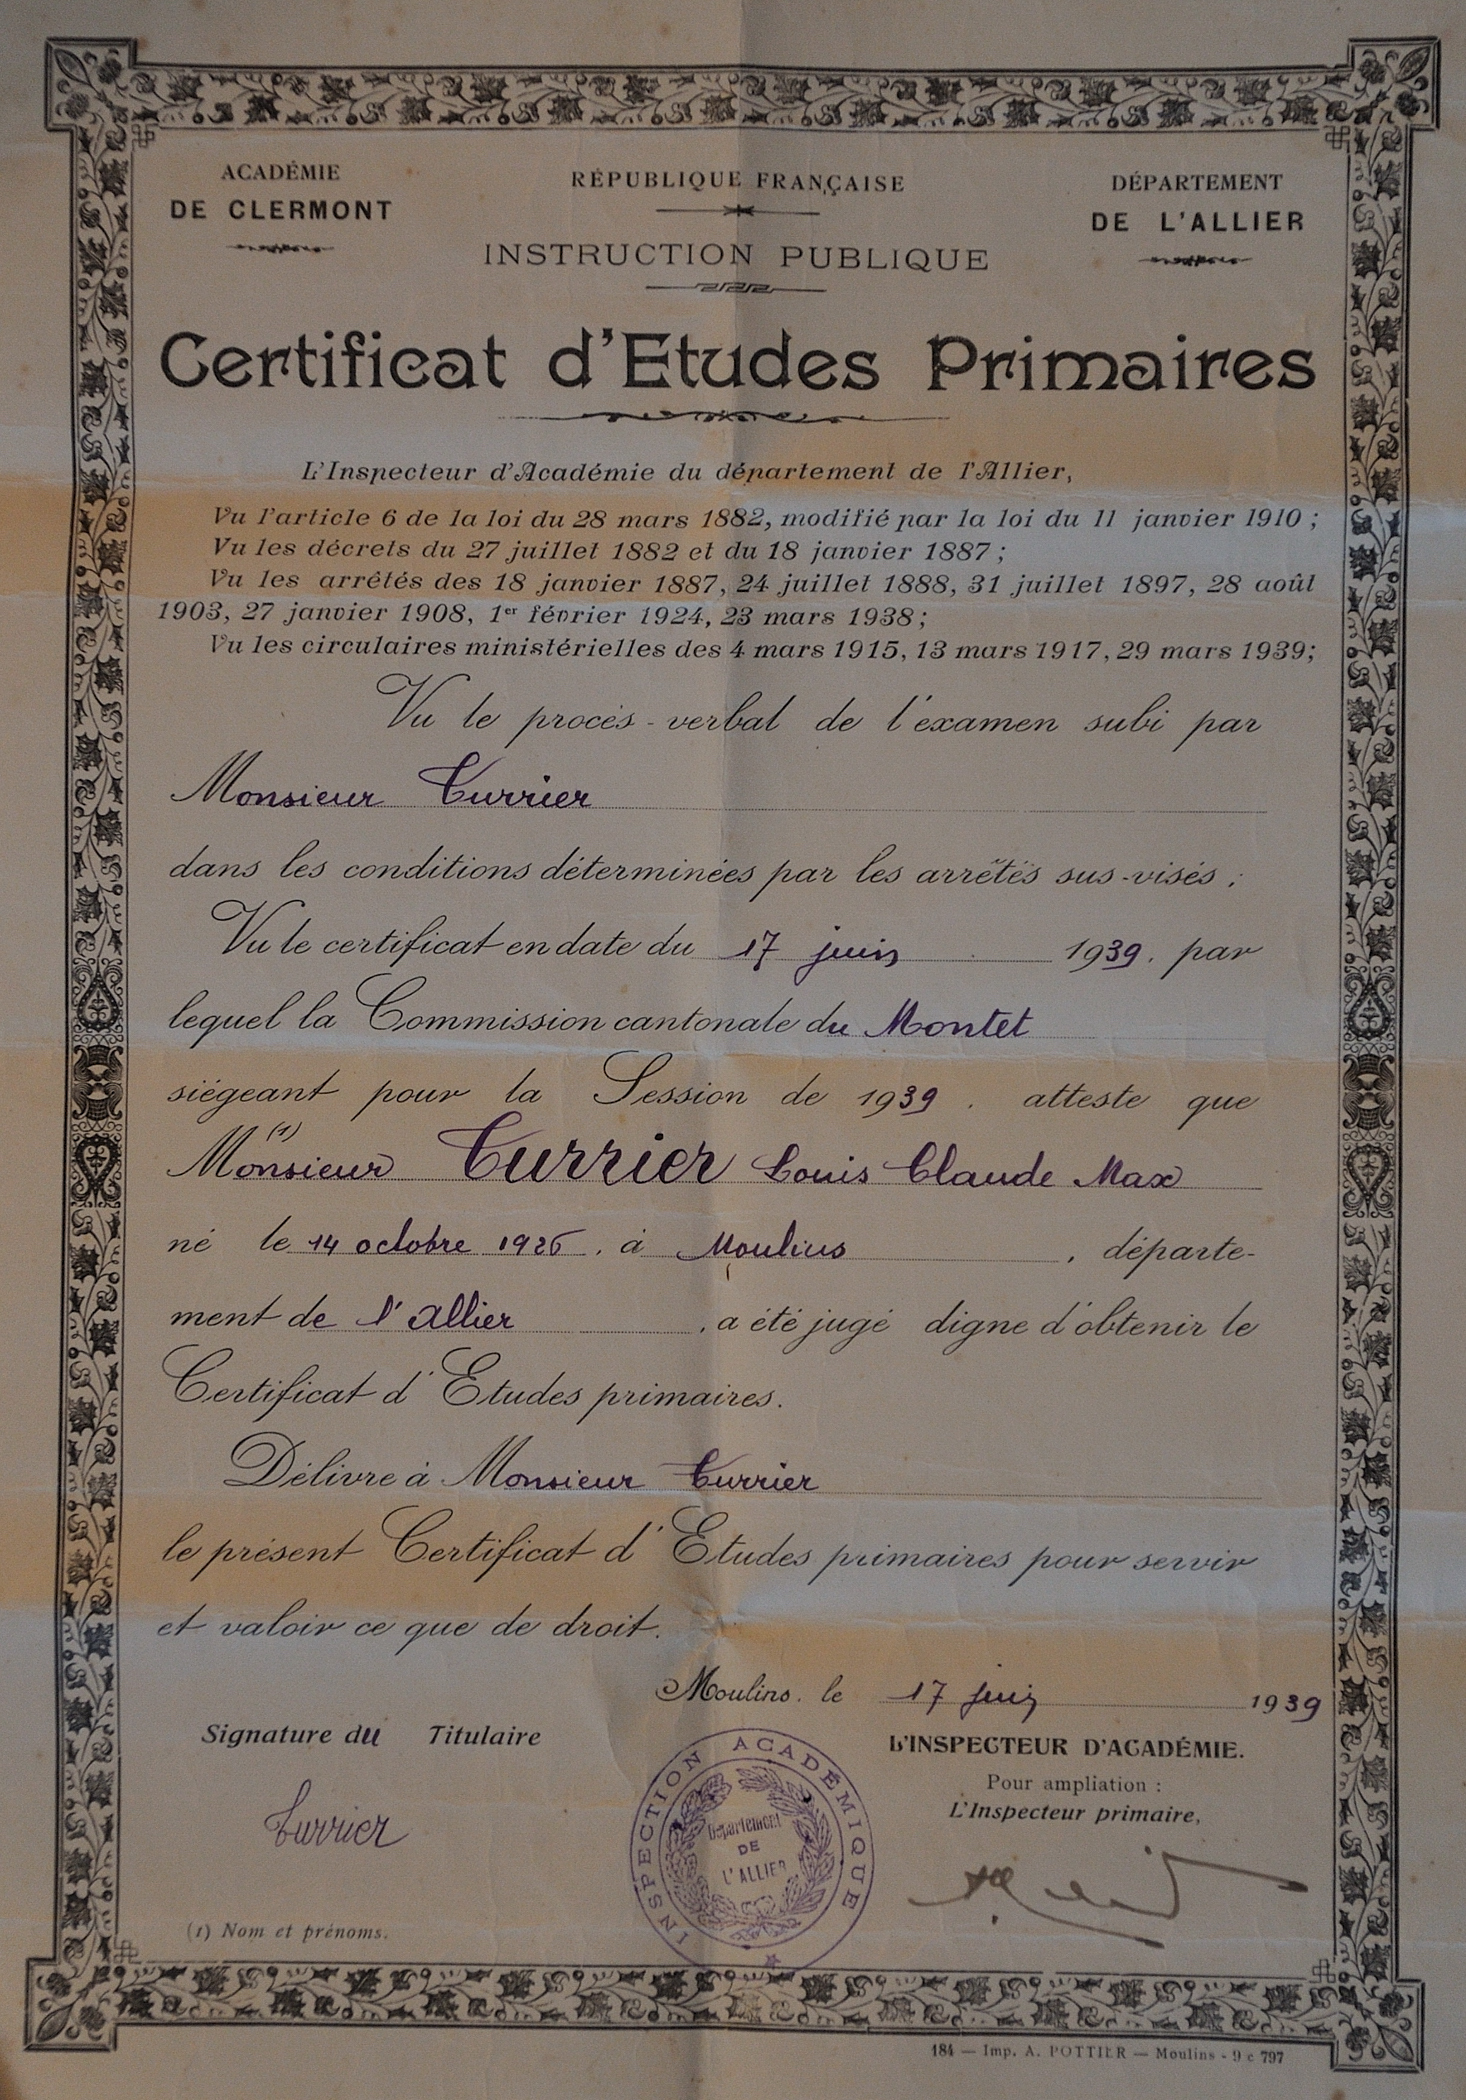 ACADÉMIE
DE CLERMONT
RÉPUBLIQUE FRANÇAISE
INSTRUCTION PUBLIQUE
DÉPARTEMENT
DE L'ALLIER
Certificat d'Etudes Primaires
L'Inspecteur d'Académie du département de l'Allier,
Vu l'article 6 de la loi du 28 mars 1882, modifié par la loi du 11 janvier 1910 ;
Vu les décrets du 27 juillet 1882 et du 18 janvier 1887 ;
Vu les arrêtés des 18 janvier 1887, 24 juillet 1888, 31 juillet 1897, 28 août
1903, 27 janvier 1908, 1er février 1924, 23 mars 1938 ;
Vu les circulaires ministérielles des 4 mars 1915, 13 mars 1917, 29 mars 1939;
Vu le procès-verbal de l'examen subi par
Monsieur Turrier
dans les conditions déterminées par les arrêtés sus-visés ;
Vu le certificat en date du 17 juin 1939, par
lequel la Commission cantonale du Montet
siégeant pour la Session de 1939, atteste que
(1)
Monsieur Turrier Louis Claude Max
né le 14 octobre 1926, à Moulins, départe-
ment de l'Allier, a été jugé digne d'obtenir le
Certificat d'Etudes primaires.
Délivré à Monsieur Turrier
le présent Certificat d'Etudes primaires pour servir
et valoir ce que de droit.
Moulins, le 17 juin 1939
Signature du Titulaire
Turrier
L'INSPECTEUR D'ACADÉMIE.
Pour ampliation :
L'Inspecteur primaire,
INSPECTION ACADÉMIQUE
Département
DE
L'ALLIER
(1) Nom et prénoms.
184 — Imp. A. POTTIER — Moulins - 9 c 797